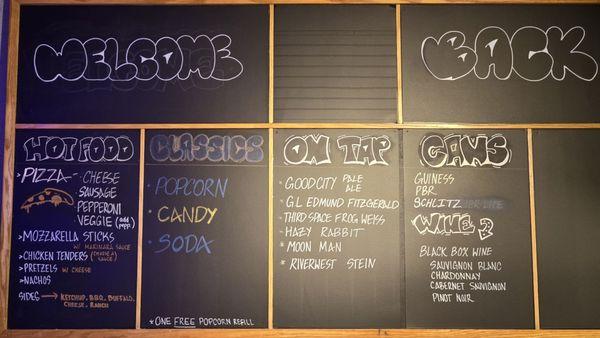 WELCOME
BACK
HOT FOOD
PIZZA - CHEESE
· SAUSAGE
· PEPPERONI
· VEGGIE (add pepp)
> MOZZARELLA STICKS
W/ MARINARA SAUCE
> CHICKEN TENDERS
> PRETZELS W/ CHEESE
> NACHOS
SIDES → KETCHUP, BBQ, BUFFALO,
CHEESE, RANCH
CLASSICS
· POPCORN
· CANDY
· SODA
* ONE FREE POPCORN REFILL
ON TAP
· GOOD CITY PALE ALE
· G.L. EDMUND FITZGERALD
· THIRD SPACE FROG WEISS
· HAZY RABBIT
* MOON MAN
* RIVERWEST STEIN
CANS
GUINESS
PBR
SCHLITZ
WINE
BLACK BOX WINE
SAUVIGNON BLANC
CHARDONNAY
CABERNET SAUVIGNON
PINOT NOIR